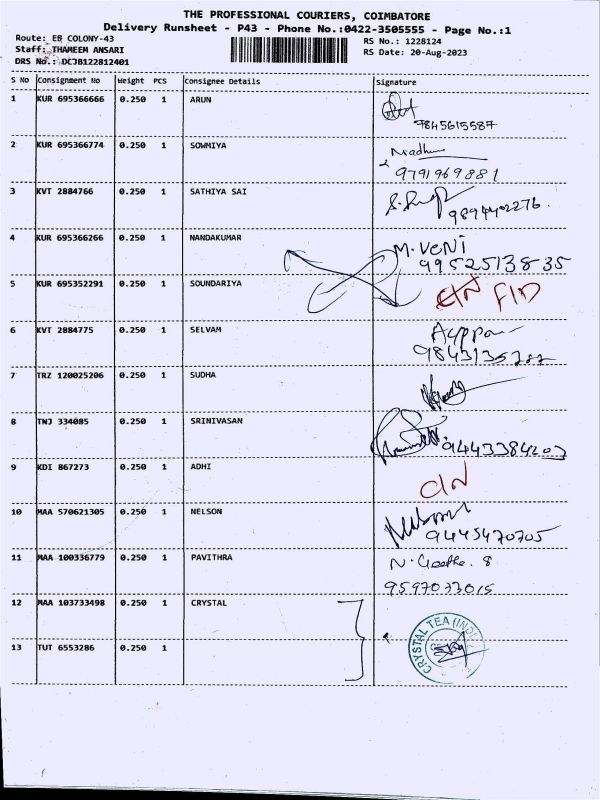 THE PROFESSIONAL COURIERS, COIMBATORE
Delivery Runsheet - P43 - Phone No.:0422-3505555 - Page No.:1
Route: EB COLONY-43
RS No.: 1228124
Staff: THAMEEM ANSARI
RS Date: 20-Aug-2023
DRS No.: DCJB122812401
S No Consignment No Weight PCS Consignee Details Signature
1 KUR 695366666 0.250 1 ARUN
9845615587
2 KUR 695366774 0.250 1 SOWMIYA Madhu
9791969881
3 KVT 2884766 0.250 1 SATHIYA SAI
9894402276.
4 KUR 695366266 0.250 1 NANDAKUMAR M. VENI
9952513835
5 KUR 695352291 0.250 1 SOUNDARIYA
6 KVT 2884775 0.250 1 SELVAM
7 TRZ 120025206 0.250 1 SUDHA
8 TNJ 334085 0.250 1 SRINIVASAN
9443384203
9 KDI 867273 0.250 1 ADHI
10 MAA 570621305 0.250 1 NELSON
9445470705
11 MAA 100336779 0.250 1 PAVITHRA
9597033015
12 MAA 103733498 0.250 1 CRYSTAL
CRYSTAL TEA
13 TUT 6553286 0.250 1